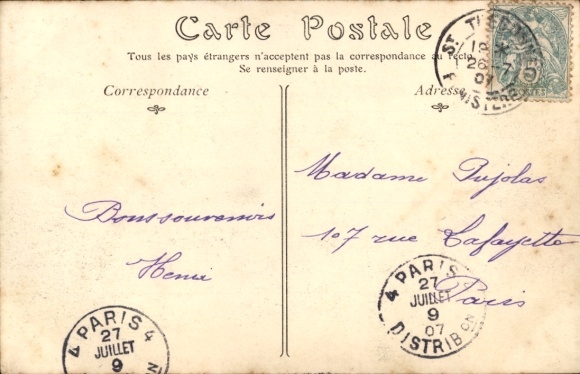 Carte Postale
Tous les pays étrangers n'acceptent pas la correspondance au recto
Se renseigner à la poste.
Correspondance
Adresse
Bonssouvenirs
Henri
Madame Pujolas
107 rue Lafayette
Paris
ST. THEGONNEC
26 7
07
FINISTERE
POSTES
4 PARIS 4
27
JUILLET
9
4 PARIS
27
JUILLET
9
07
DISTRIBON